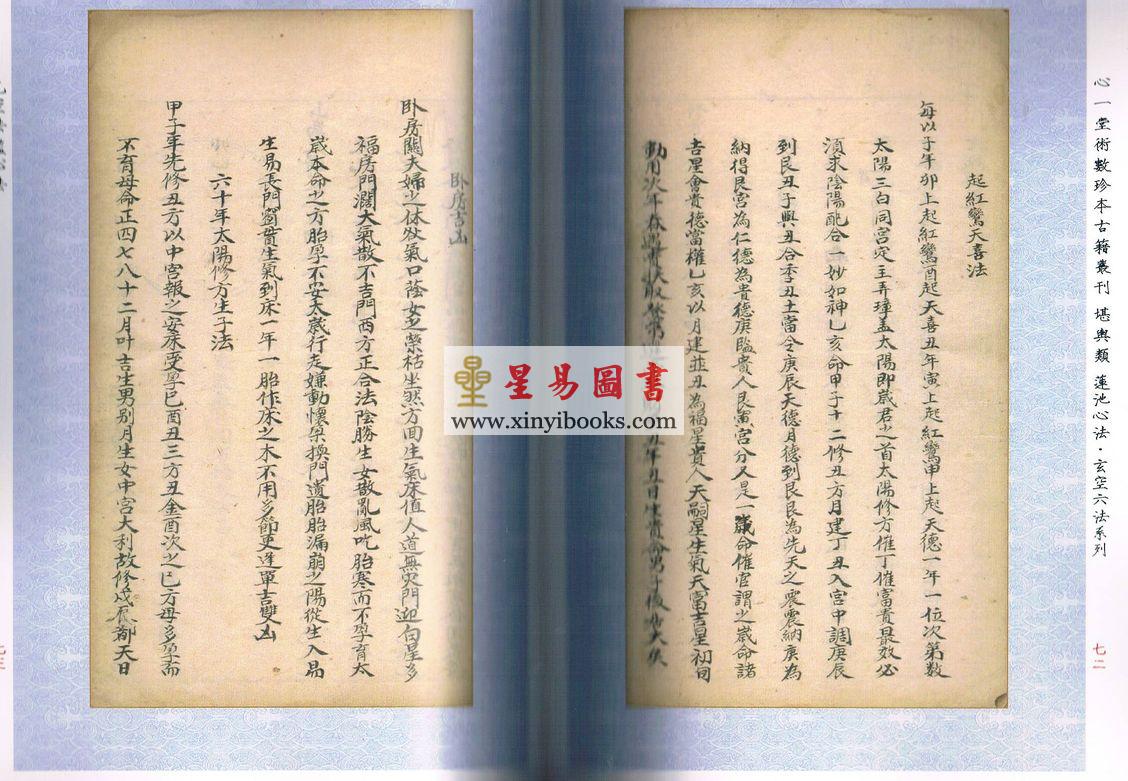 心一堂術數珍本古籍叢刊 堪輿類 蓮池心法·玄空六法系列
七二
起紅鸞天喜法
每以子年卯上起紅鸞酉起天喜丑年寅上起紅鸞申上起天德一年一位次第数
太陽三白同宮定主弄璋盖太陽即歲君之首太陽修方催丁催富貴最效必
須求陰陽配合一妙如神乙亥命甲子十二修丑方月建丁丑入宮中調庚辰
到艮丑子與丑合季丑土當令庚辰天德月德到艮艮為先天之震震納庚為
納得艮宮為仁德為貴德庚臨貴人艮寅宮分又是一歲命催官謂之歲命諸
吉星會貴德當權乙亥以月建並丑為福星貴人天嗣星生氣天富吉星初旬
動用次年春
年丑日生貴命男子後
大矣
卧房吉凶
卧房關夫婦之休咎氣口蔭女之榮枯坐煞方面生氣床值人道無灾門迎白星多
福房門濶大氣散不吉門西方正合法陰勝生女散亂風吃胎寒而不孕育太
歲本命之方胎孕不安太歲行走嫌動懷孕換門遺胎胎漏崩之陽從生入易
生易長門窗貴生氣到床一年一胎作床之木不用多節更逢單吉雙凶
六十年太陽修方生子法
甲子年先修丑方以中宮報之安床受孕巳酉丑三方丑金酉次之巳方母多孕而
不育母命正四七八十二月叶吉生男别月生女中宮大利故修戊辰都天日
星易圖書
www.xinyibooks.com